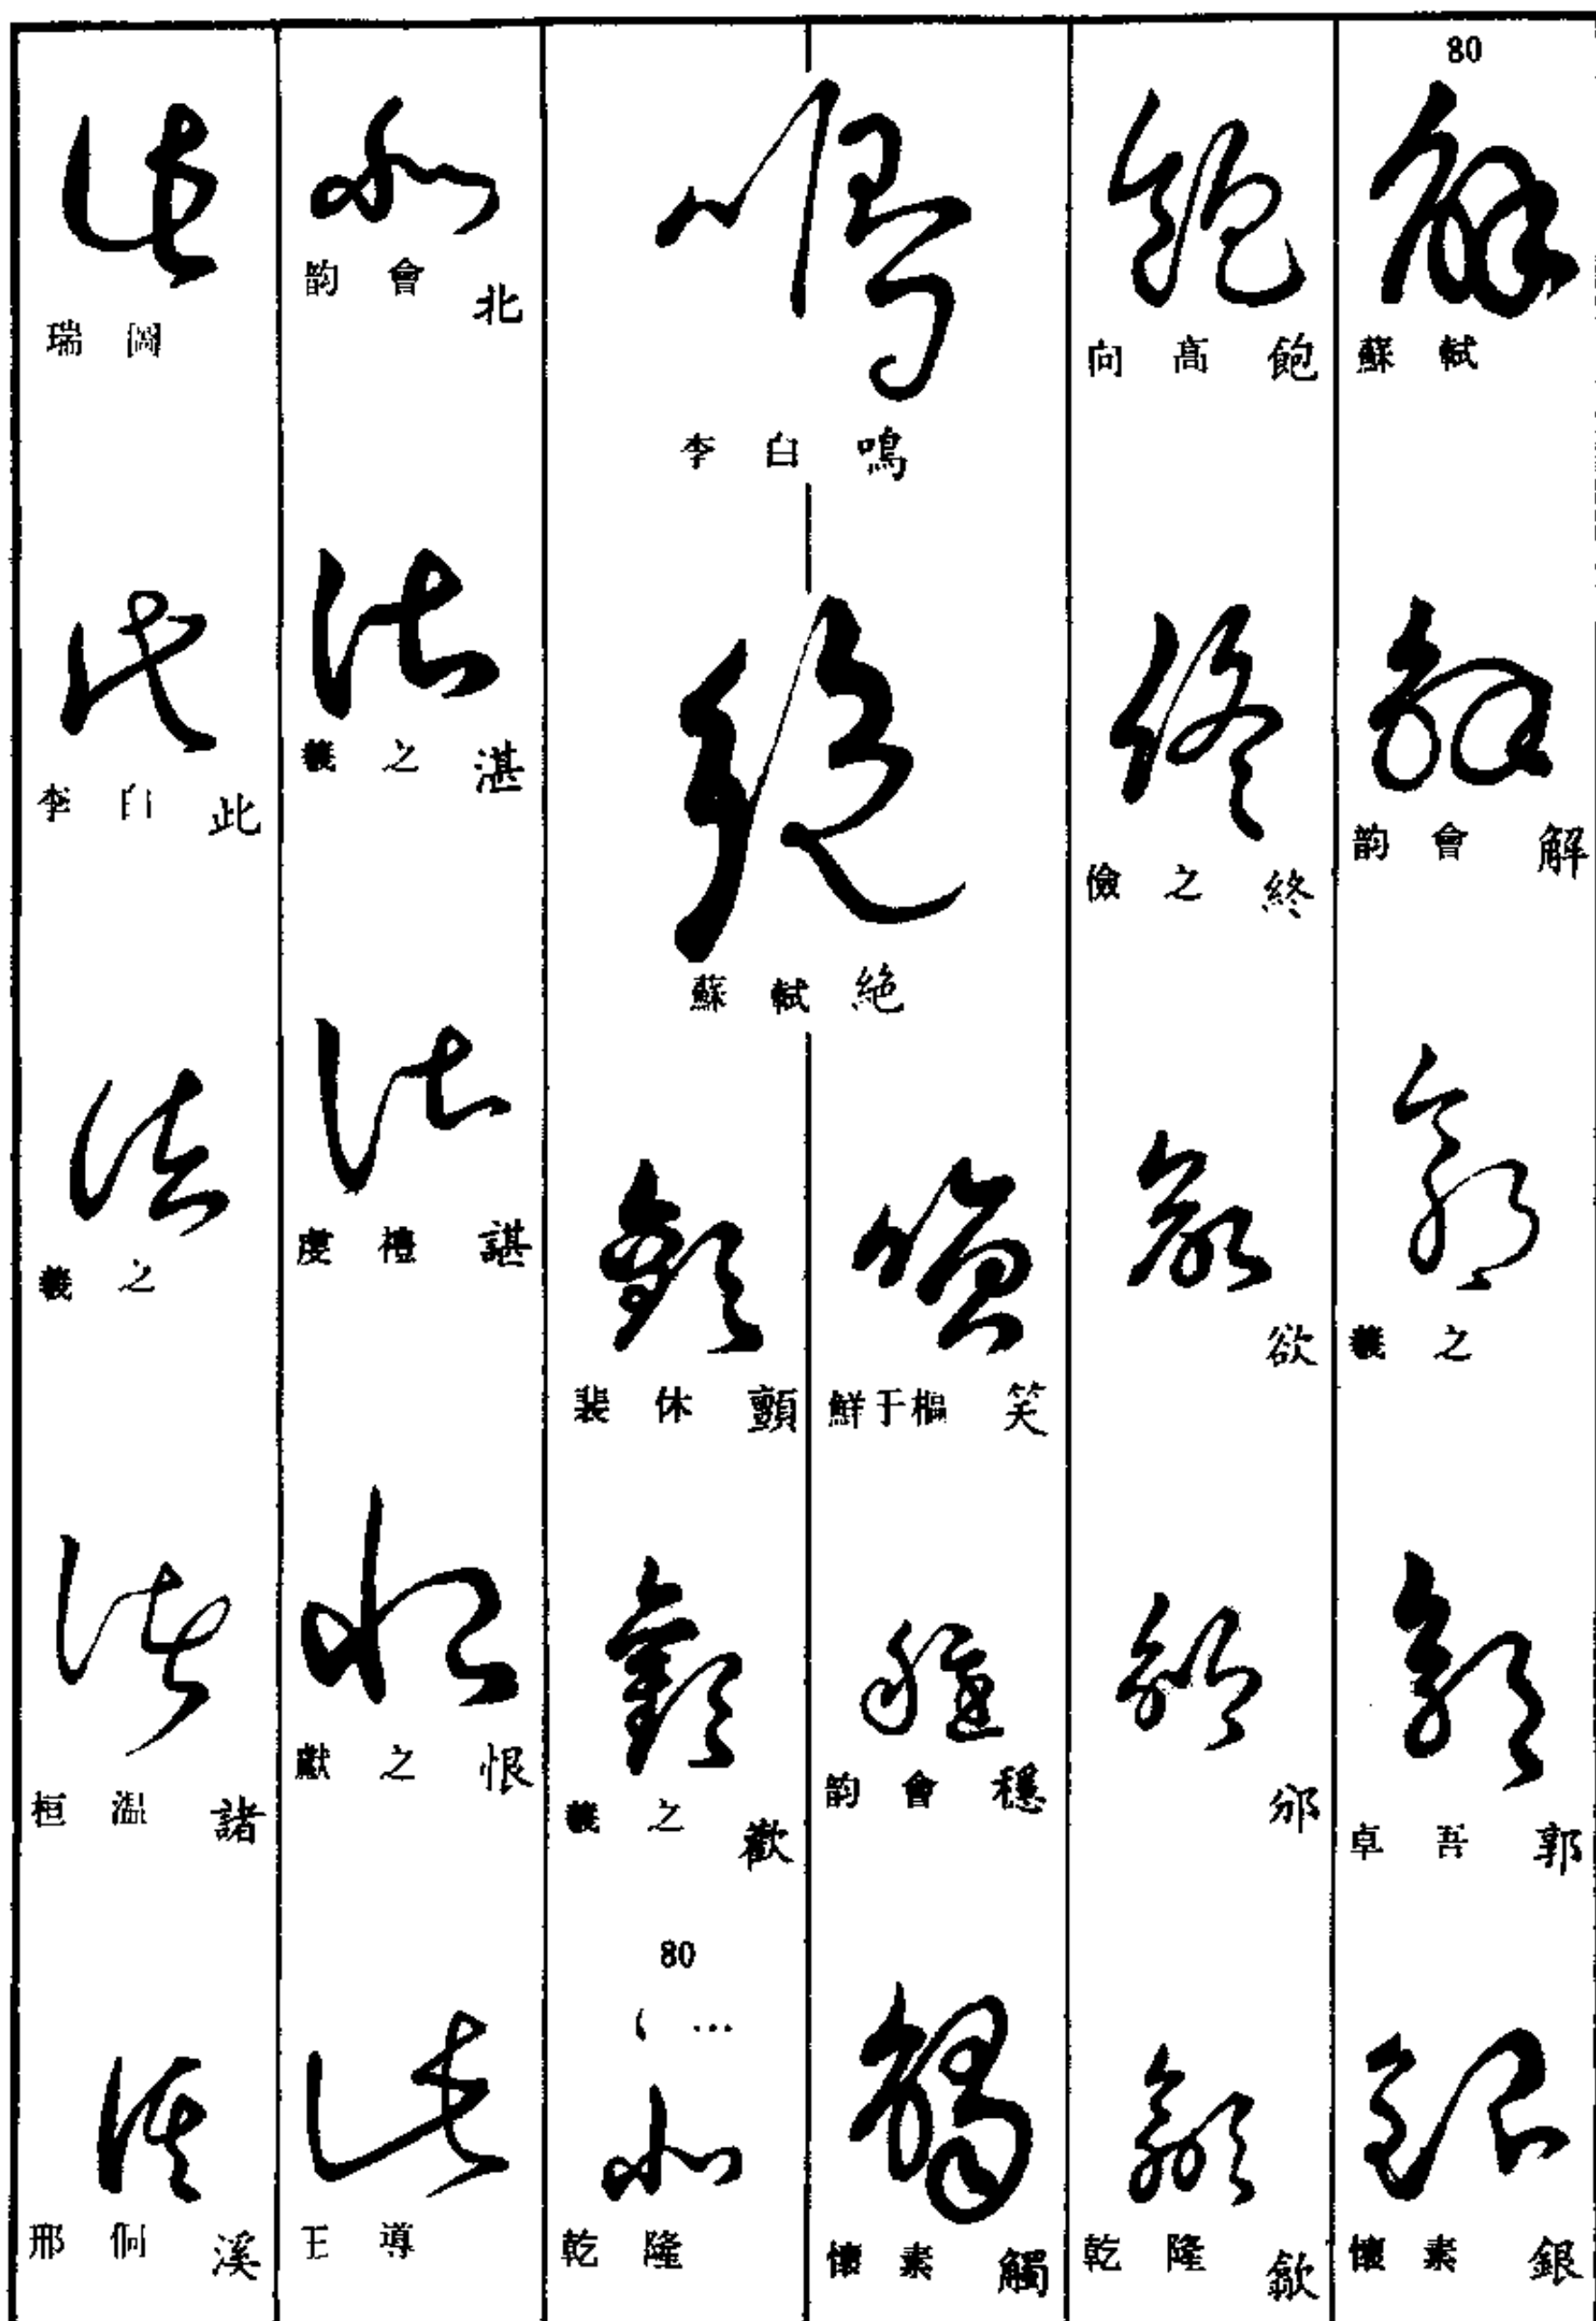 80
蘇軾
韵會 解
羲之
卓吾 郭
懷素 銀
向高 飽
儉之 終
欲
邠
乾隆 歙
李白 鳴
蘇軾 絕
鮮于樞 笑
韵會 穩
懷素 觸
裴休 顫
羲之 歡
80
乾隆
韵會 北
羲之 湛
虔禮 諶
獻之 恨
王導
瑞圖
李白 此
羲之
桓温 諸
邢侗 溪